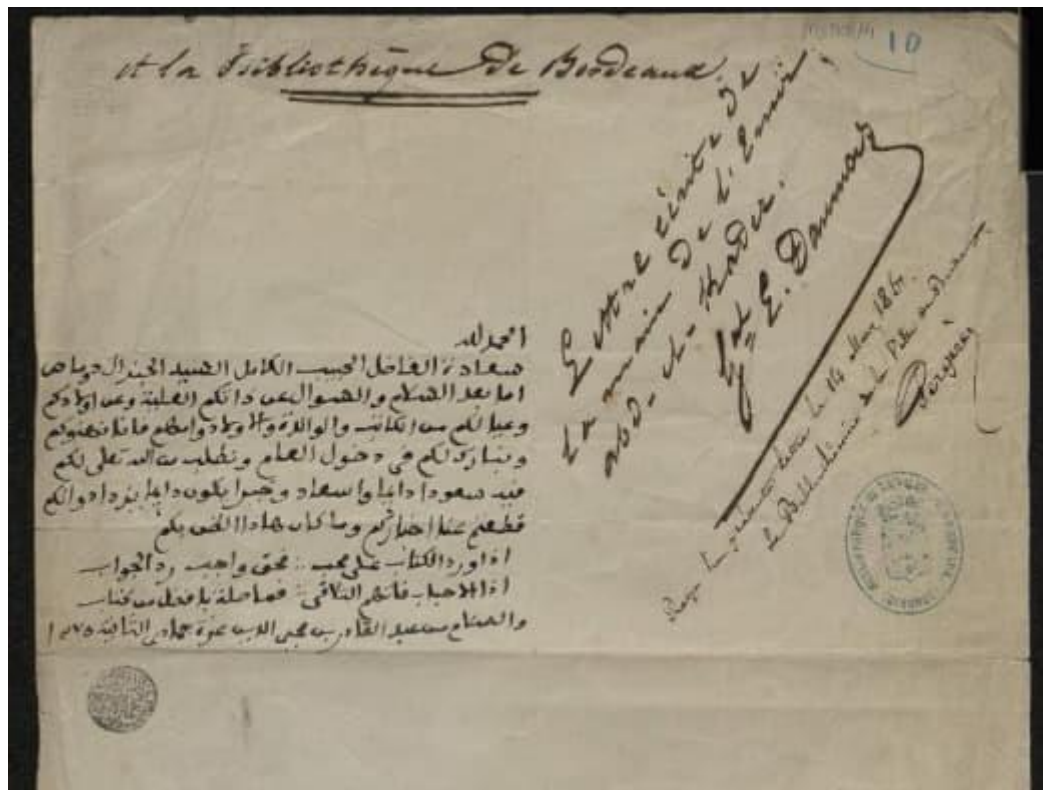 10
A la Bibliothèque de Bordeaux.
Lettre écrite de
la main de l'Emir
abd-el-Kader.
Gal E. Daumas
Reçu la présente lettre le 14 Mars 186
Le Bibliothécaire de la Ville de Bordeaux
الحمد لله
سعادة الفاضل الحبيب الكامل السيد الجنرال دوماس
اما بعد السلام والسوال عن ذاتكم العلية وعن اولادكم
وعيالكم من الكاتب والوالدة والاولاد وامهم فاننا نهنوكم
ونبارك لكم في دخول العام ونطلب من الله تعلى لكم
فيه سعودا دايما واسعاد وخيرا يكون دايما يزداد والكم
قطعتم عنا اخباركم وما كان هاذا الظن بكم
اذا ورد الكتاب على محب ∴ فحق واجب رد الجواب
اذا الاحباب فاتهم التلاقي ∴ فما صلة بافضل من كتاب
والسلام من عبد القادر بن محيي الدين غرة جمادى الثانية